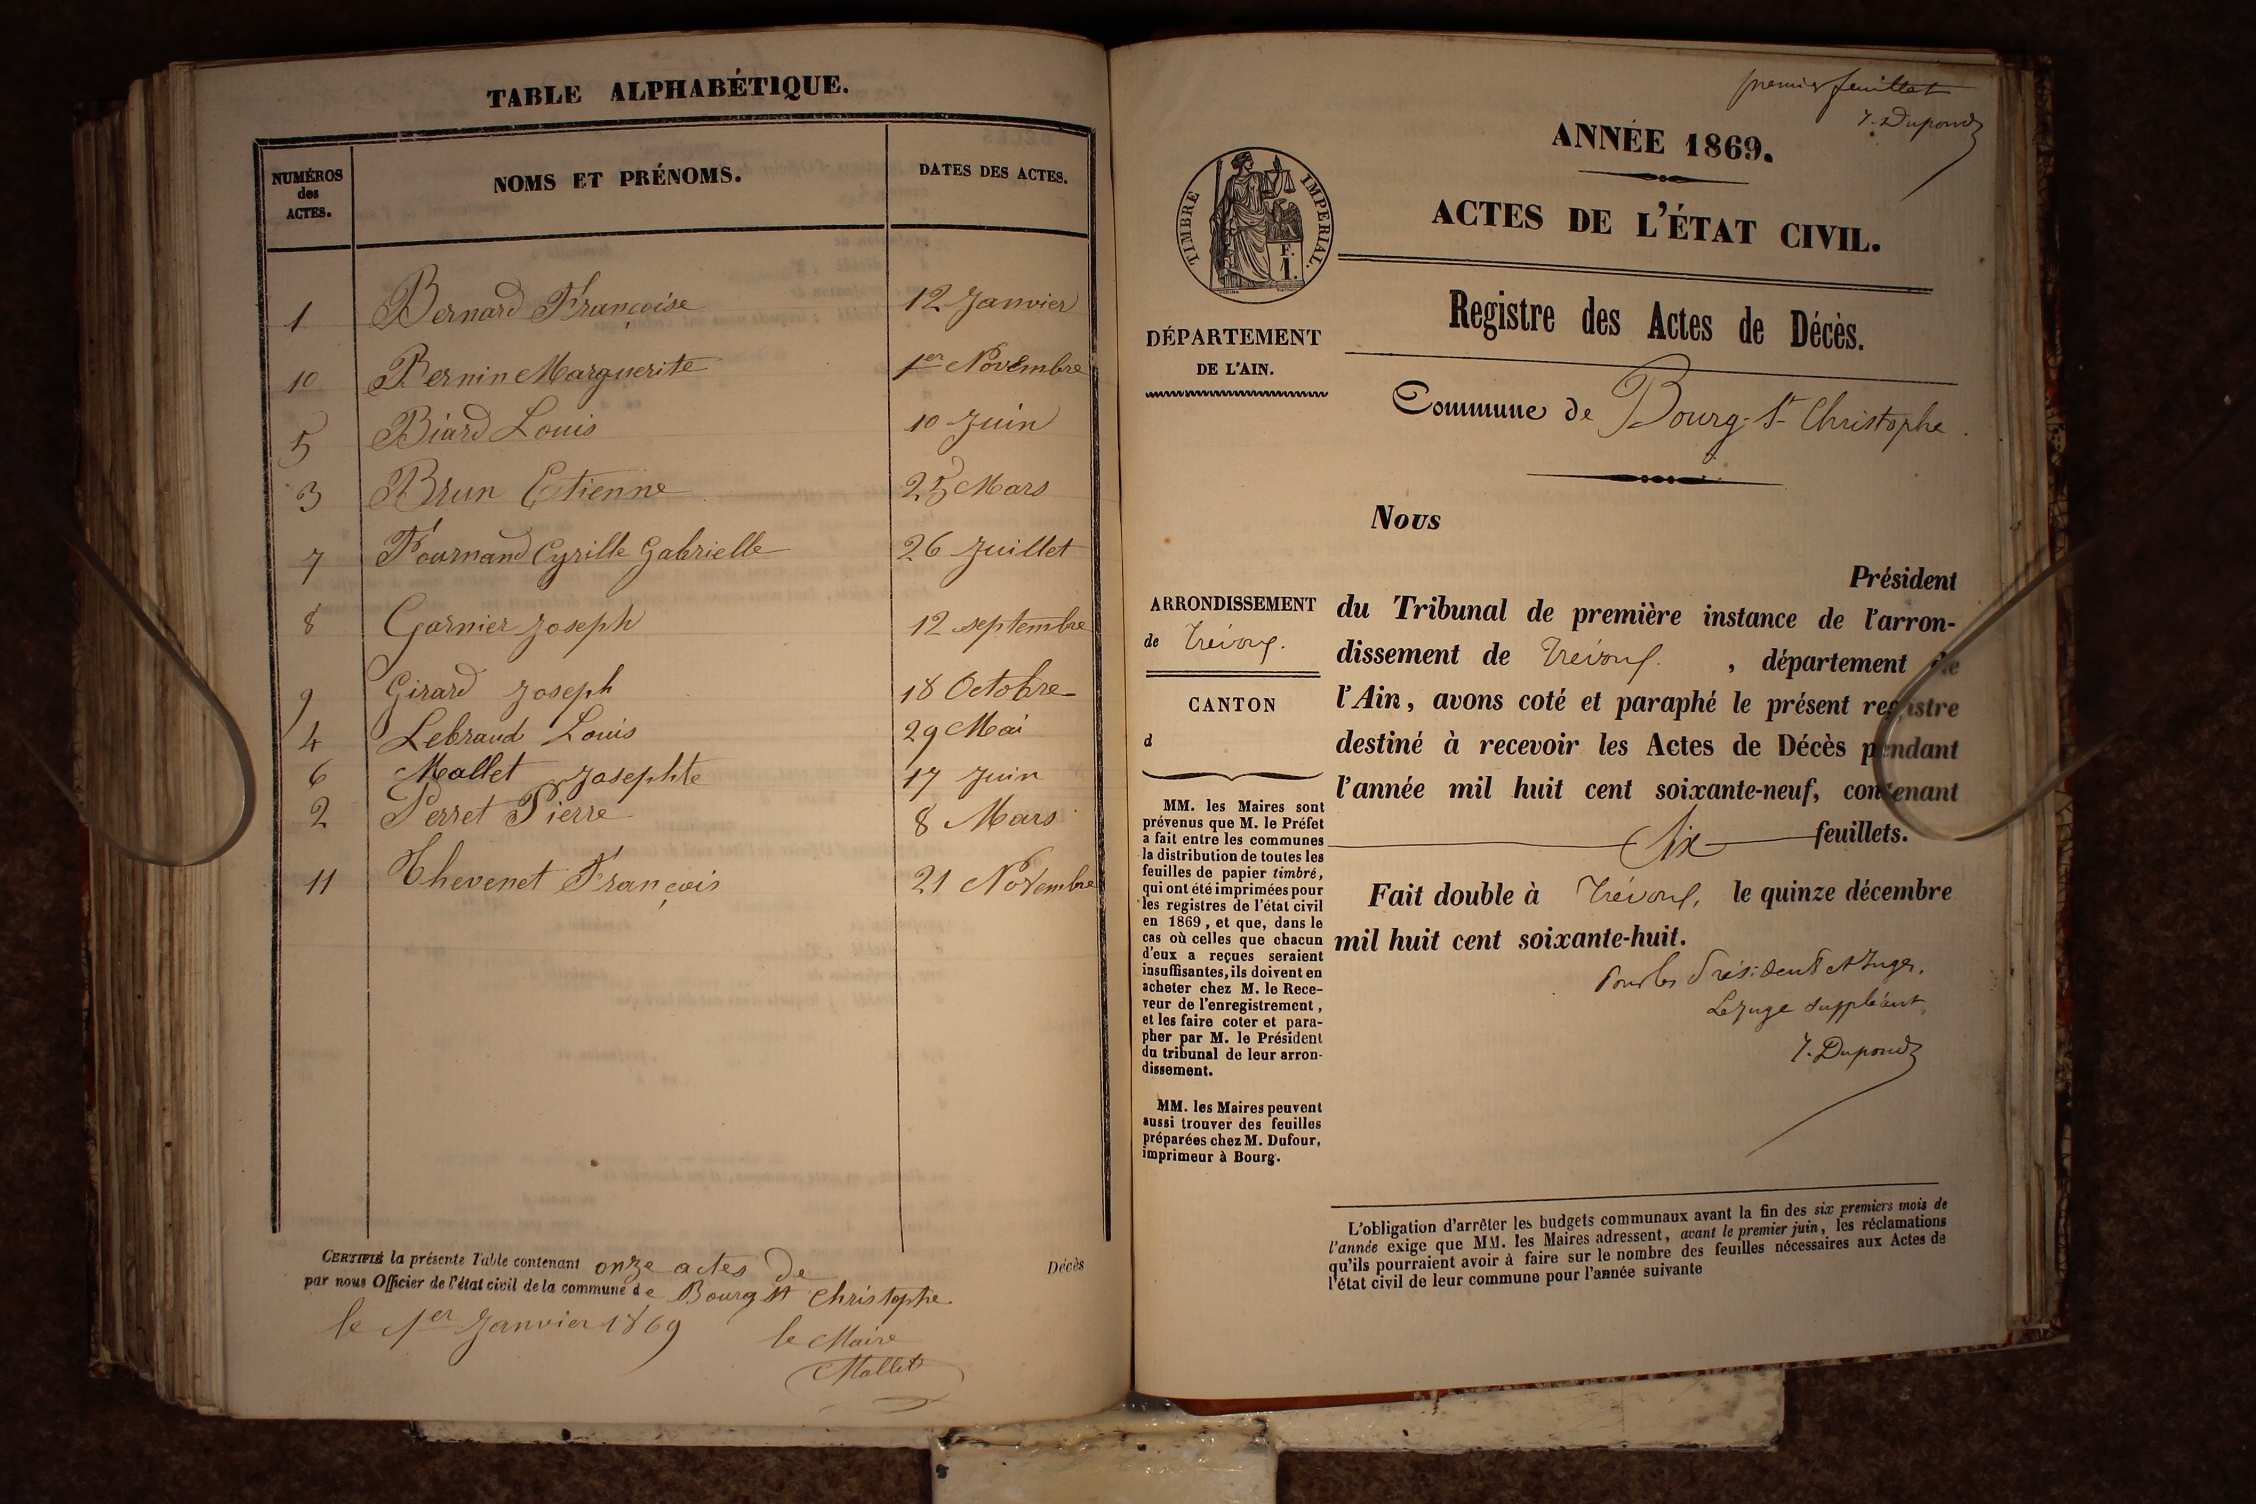 TABLE ALPHABÉTIQUE.
NUMÉROS des ACTES. NOMS ET PRÉNOMS. DATES DES ACTES.
1 Bernard Françoise 12 Janvier
10 Bernin Marguerite 1er Novembre
5 Biard Louis 10 Juin
3 Brun Etienne 25 Mars
7 Fournand Cyrille Gabrielle 26 Juillet
8 Garnier Joseph 12 septembre
9 Girard Joseph 18 Octobre
4 Lebraud Louis 29 Mai
6 Mallet Josephte 17 Juin
2 Perret Pierre 8 Mars
11 Thevenet François 21 Novembre
CERTIFIÉ la présente Table contenant onze actes de Décès
par nous Officier de l'état civil de la commune de Bourg St Christophe
le 1er Janvier 1869 le Maire
Mallet
premier feuillet
J. Dupond
ANNÉE 1869.
ACTES DE L'ÉTAT CIVIL.
TIMBRE IMPERIAL.
F.
1.
Registre des Actes de Décès.
DÉPARTEMENT
DE L'AIN.
Commune de Bourg-St-Christophe.
ARRONDISSEMENT
de Trévoux.
CANTON
d
MM. les Maires sont
prévenus que M. le Préfet
a fait entre les communes
la distribution de toutes les
feuilles de papier timbré,
qui ont été imprimées pour
les registres de l'état civil
en 1869, et que, dans le
cas où celles que chacun
d'eux a reçues seraient
insuffisantes, ils doivent en
acheter chez M. le Rece-
veur de l'enregistrement,
et les faire coter et para-
pher par M. le Président
du tribunal de leur arron-
dissement.
MM. les Maires peuvent
aussi trouver des feuilles
préparées chez M. Dufour,
imprimeur à Bourg.
Nous
Président
du Tribunal de première instance de l'arron-
dissement de Trévoux. , département de
l'Ain, avons coté et paraphé le présent registre
destiné à recevoir les Actes de Décès pendant
l'année mil huit cent soixante-neuf, contenant
Six feuillets.
Fait double à Trévoux, le quinze décembre
mil huit cent soixante-huit.
Pour les Président et Juges,
Le Juge suppléant,
J. Dupond
L'obligation d'arrêter les budgets communaux avant la fin des six premiers mois de
l'année exige que MM. les Maires adressent, avant le premier juin, les réclamations
qu'ils pourraient avoir à faire sur le nombre des feuilles nécessaires aux Actes de
l'état civil de leur commune pour l'année suivante